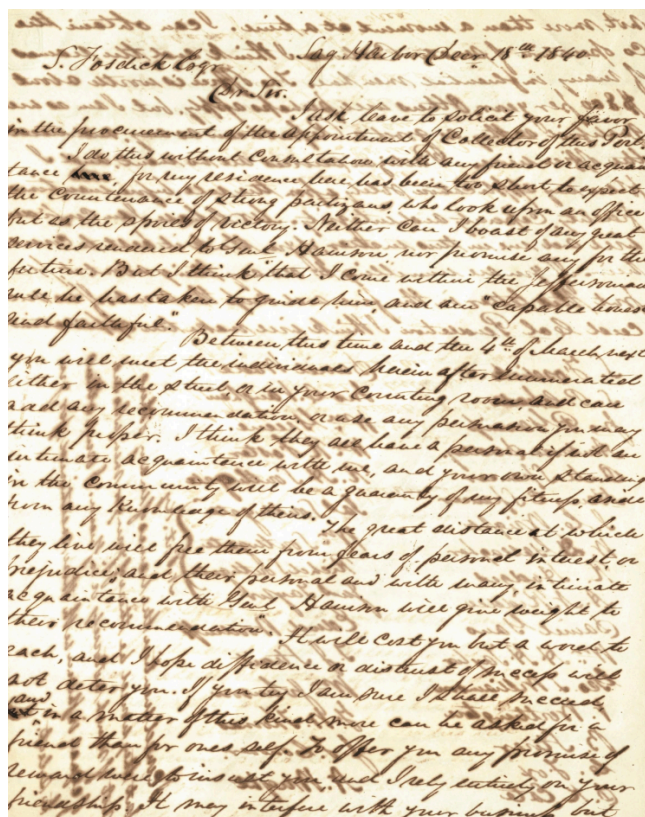 S. Fosdick Esqr Sag Harbor Decr 18th 1840.
Dr Sir.
I ask leave to solicit your favor
in the procurement of the appointment of Collector of this Port.
I do this without Consultation with any friend or acquain
tance for my residence here has been too short to expect
the countenance of strong partizans, who look upon an office
but as the spoils of victory. Neither can I boast of any great
services rendered to Genl Harrison, nor promise any for the
future. But I think that I come within the Jeffersonian
rule he has taken to guide him, and am "capable honest
and faithful".
Between this time and the 4th of March next
you will meet the individuals herein after enumerated
either in the street, or in your Counting room, and can
add any recommendation, or use any persuasion you may
think proper. I think they all have a personal if not an
intimate acquaintance with me, and your own standing
in the community will be a guaranty of my fitness, aside
from any Knowledge of theirs. The great distance at which
they live will free them from fears of personal interest, or
prejudice, and their personal and with many, intimate
acquaintance with Genl Harrison will give weight to
their recommendation. It will cost you but a word to
each, and I hope diffidence or distrust of success will
not deter you. If you try I am sure I shall succeed
and in a matter of this kind more can be asked for a
friend than for ones self. To offer you any promise of
reward were to insult you and I rely entirely on your
friendship. It may interfere with your business but